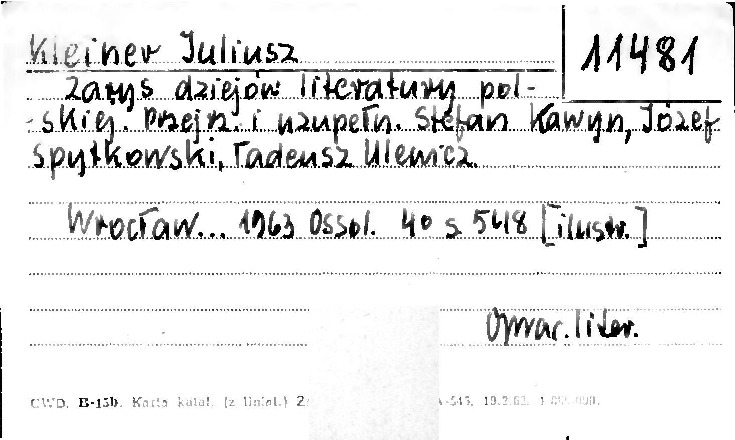 Kleiner Juliusz
11481
Zarys dziejów literatury pol-
-skiej. Przejrz. i uzupełn. Stefan Kawyn, Józef
Spytkowski, Tadeusz Ulewicz.
Wrocław... 1963 Ossol. 4° s. 548 [ilustr.]
Oprac. liter.
CWD. B-15b. Karta katal. (z liniat.)